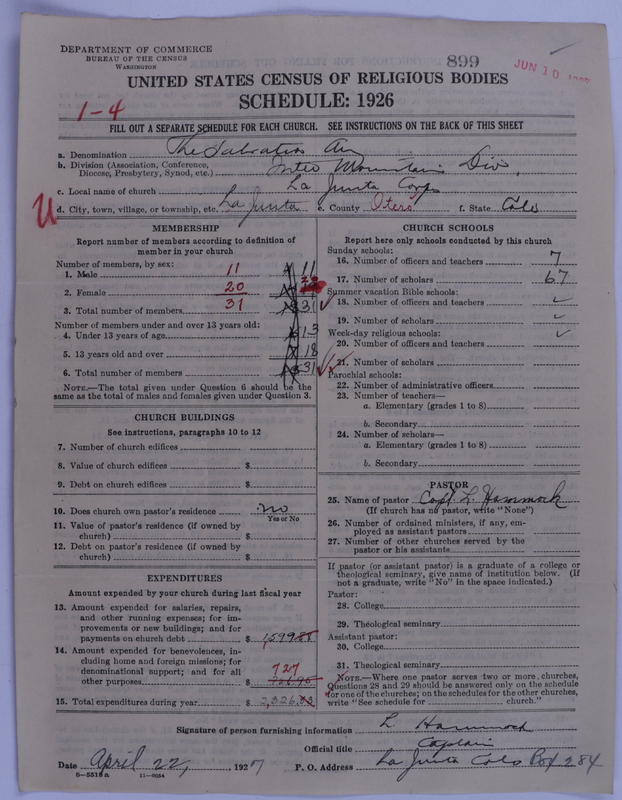 DEPARTMENT OF COMMERCE
BUREAU OF THE CENSUS
WASHINGTON
899
JUN 10
UNITED STATES CENSUS OF RELIGIOUS BODIES
SCHEDULE: 1926
1-4
FILL OUT A SEPARATE SCHEDULE FOR EACH CHURCH. SEE INSTRUCTIONS ON THE BACK OF THIS SHEET
a. Denomination The Salvation
b. Division (Association, Conference, Diocese, Presbytery, Synod, etc.) Inter Mountain Div.
c. Local name of church La Junta Corps
U
d. City, town, village, or township, etc. La Junta e. County Otero f. State Colo
MEMBERSHIP
Report number of members according to definition of
member in your church
Number of members, by sex:
1. Male 11 11
2. Female 20
3. Total number of members 31 31
Number of members under and over 13 years old:
4. Under 13 years of age 13
5. 13 years old and over 18
6. Total number of members 31
NOTE.—The total given under Question 6 should be the
same as the total of males and females given under Question 3.
CHURCH BUILDINGS
See instructions, paragraphs 10 to 12
7. Number of church edifices
8. Value of church edifices $
9. Debt on church edifices $
10. Does church own pastor's residence no
Yes or No
11. Value of pastor's residence (if owned by
church) $
12. Debt on pastor's residence (if owned by
church) $
EXPENDITURES
Amount expended by your church during last fiscal year
13. Amount expended for salaries, repairs,
and other running expenses; for im-
provements or new buildings; and for
payments on church debt $ 1,599.88
14. Amount expended for benevolences, in-
cluding home and foreign missions; for
denominational support; and for all 727
other purposes $
15. Total expenditures during year $ 2,326.83
CHURCH SCHOOLS
Report here only schools conducted by this church
Sunday schools:
16. Number of officers and teachers 7
17. Number of scholars 67
Summer vacation Bible schools:
18. Number of officers and teachers
19. Number of scholars
Week-day religious schools:
20. Number of officers and teachers
21. Number of scholars
Parochial schools:
22. Number of administrative officers
23. Number of teachers—
a. Elementary (grades 1 to 8)
b. Secondary
24. Number of scholars—
a. Elementary (grades 1 to 8)
b. Secondary
PASTOR
25. Name of pastor Capt. L. Hammock
(If church has no pastor, write "None")
26. Number of ordained ministers, if any, em-
ployed as assistant pastors
27. Number of other churches served by the
pastor or his assistants
If pastor (or assistant pastor) is a graduate of a college or
theological seminary, give name of institution below. (If
not a graduate, write "No" in the space indicated.)
Pastor:
28. College
29. Theological seminary
Assistant pastor:
30. College
31. Theological seminary
NOTE.—Where one pastor serves two or more churches,
Questions 28 and 29 should be answered only on the schedule
for one of the churches; on the schedules for the other churches,
write "See schedule for church."
Signature of person furnishing information L. Hammock
Official title Captain
Date April 22, 1927 P. O. Address La Junta Colo Box 284
8-5518a 11-9054